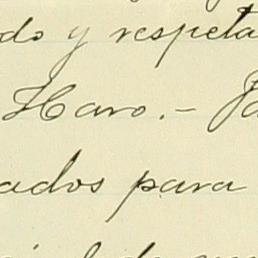 do y respeta
Haro.— Ja
ados para